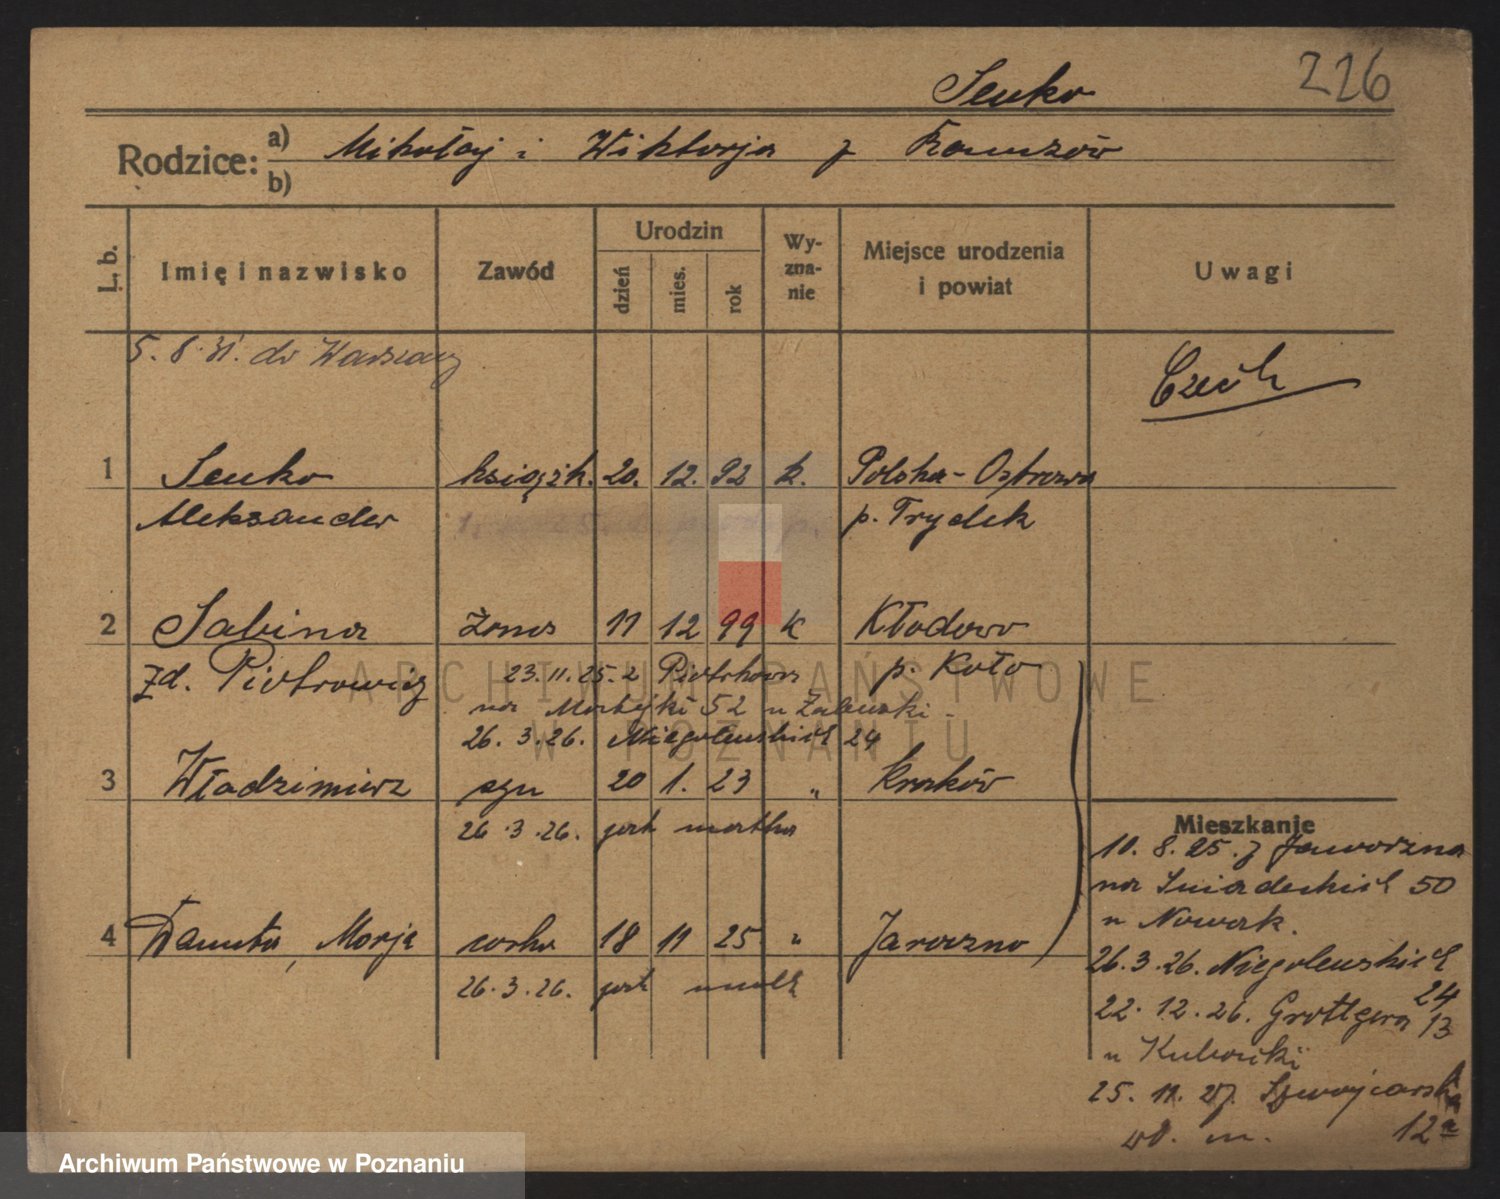 226
Senko
Rodzice: a) Mikołaj i Wiktorja z
b)
L. b.
Imię i nazwisko
Zawód
Urodzin
dzień
mies.
rok
Wy-
zna-
nie
Miejsce urodzenia
i powiat
Uwagi
5. 8. 31. do Warszawy
Czech
1 Senko książk. 20. 12. 92 k. Polska-Ostrawa
Aleksander p. Frydek
2 Sabina żona 11 12 99 k Kłodawa
zd. Piotrowicz 23. 11. 25. z Piotrkowa p. Koło
na 52 u Zalewski
26. 3. 26. Niegolewskich 24
3 Włodzimierz syn 20 1. 23 " Kraków
26. 3. 26. jak matka
4 Danuta, Marja córka 18 11 25 " Jaworzno
26. 3. 26. jak
Mieszkanie
10. 8. 25. z Jaworzna
na Śniadeckich 50
u Nowak.
26. 3. 26. Niegolewskich
24
22. 12. 26. Grottgera 13
u
25. 11. 27. Szwajcarska
wł. m. 12a
ARCHIWUM PAŃSTWOWE
W POZNANIU
Archiwum Państwowe w Poznaniu